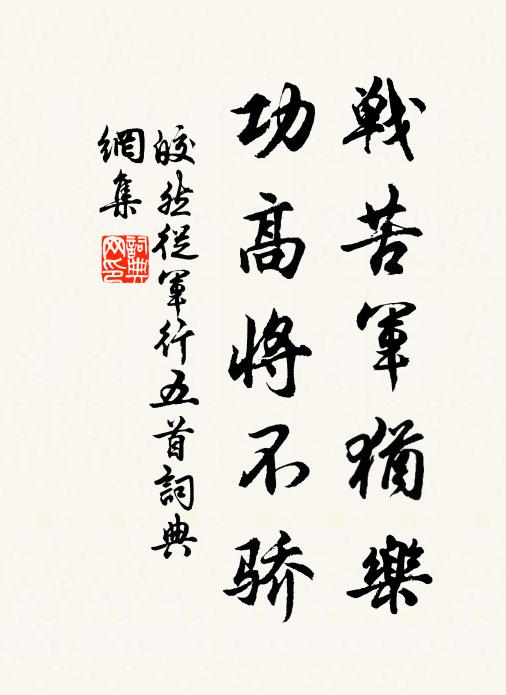 戦苦軍猶樂
功高將不骄
皎然從軍行五首詞典
網集
詞典网印